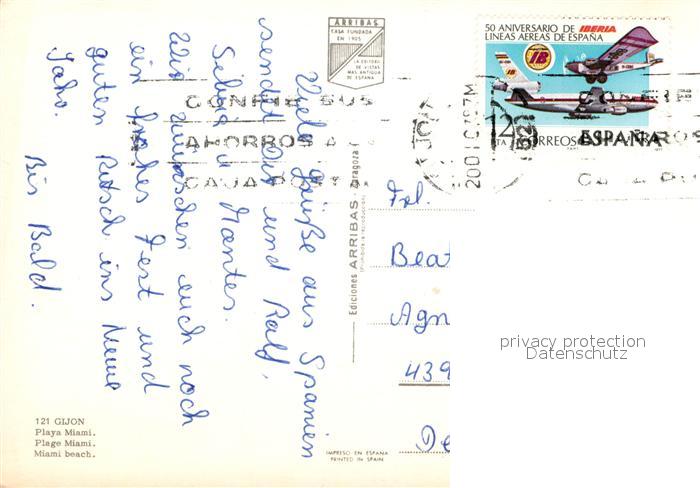 ARRIBAS
CASA FUNDADA
EN 1905
LA EDITORA
DE VISTAS
MAS ANTIGUA
DE ESPAÑA
50 ANIVERSARIO DE IBERIA
LINEAS AEREAS DE ESPAÑA
IB
12
PTA
CORREOS
ESPAÑA
CONFIE SUS
AHORROS A
CAJA POSTAL
GIJON
20 DIC 77
Viele Grüße aus Spanien
sendet Dir und Ralf,
Montes.
Wir wünschen euch noch
ein frohes Fest und
guten Rutsch ins Neue
Jahr.
Bis Bald.
Ediciones ARRIBAS - Zaragoza
Frl.
Beat
Agn
439
De
privacy protection
Datenschutz
121 GIJON
Playa Miami.
Plage Miami.
Miami beach.
IMPRESO EN ESPAÑA
PRINTED IN SPAIN